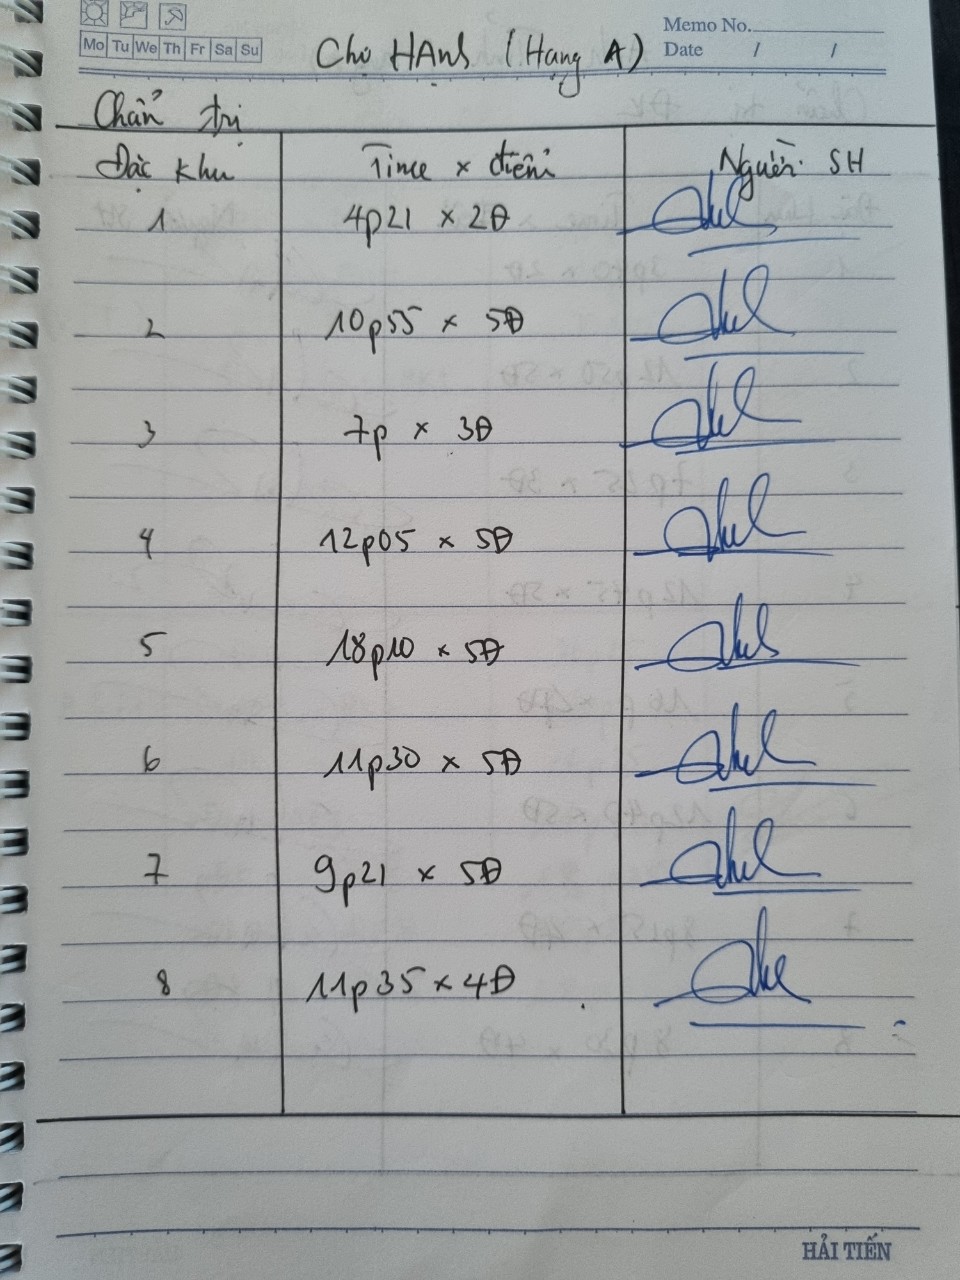 Memo No.
Mo Tu We Th Fr Sa Su
Date / /
Chợ HAnh (Hạng A)
Chẩn trị
Đặc khu Time x điểm Người SH
1 4p21 x 2Đ
2 10p55 x 5Đ
3 7p x 3Đ
4 12p05 x 5Đ
5 18p10 x 5Đ
6 11p30 x 5Đ
7 9p21 x 5Đ
8 11p35 x 4Đ
HẢI TIẾN